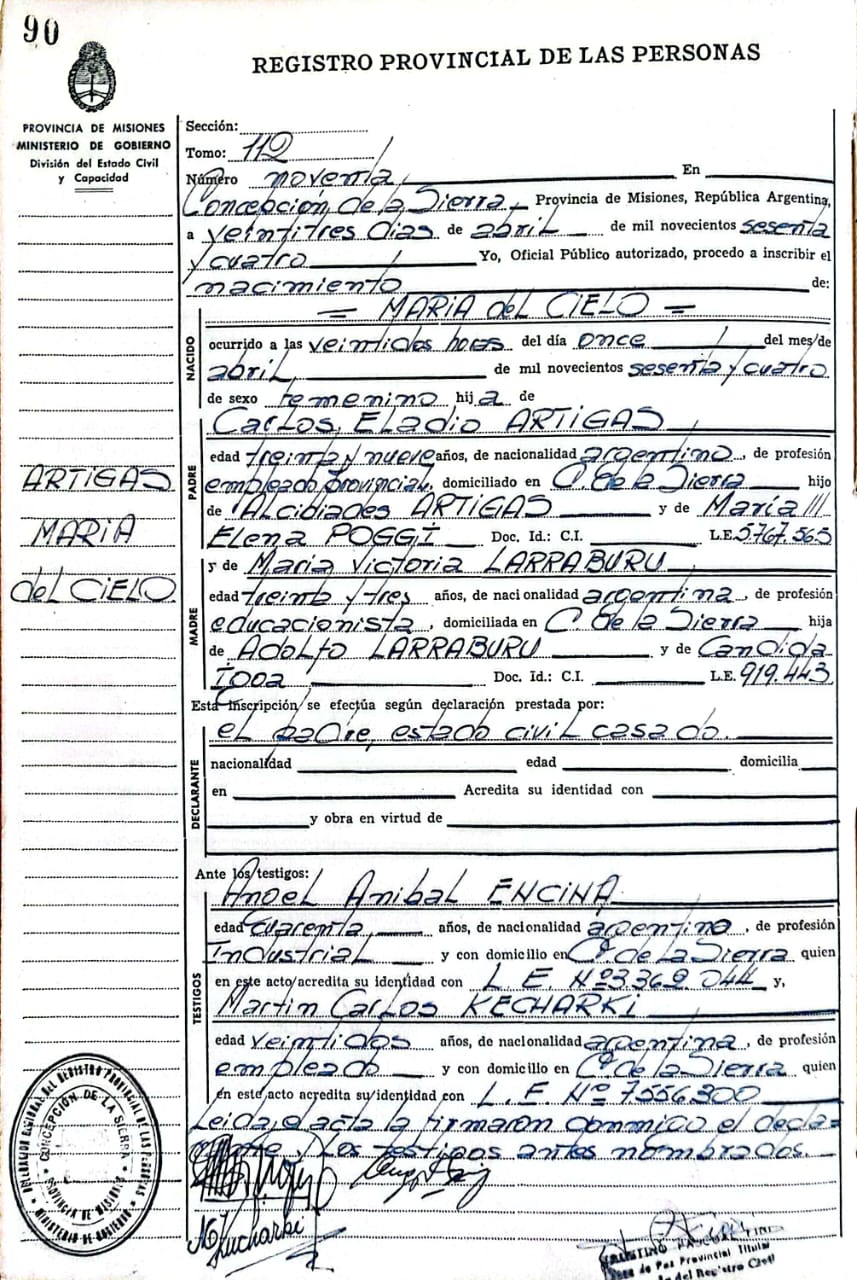 90
REGISTRO PROVINCIAL DE LAS PERSONAS
PROVINCIA DE MISIONES
MINISTERIO DE GOBIERNO
División del Estado Civil
y Capacidad
Sección:
Tomo: 112
Número noventa En
Concepción de la Sierra Provincia de Misiones, República Argentina,
a veintitres dias de abril de mil novecientos sesenta
y cuatro Yo, Oficial Público autorizado, procedo a inscribir el
nacimiento de:
= MARIA del CIELO =
NACIDO
ocurrido a las veintidos horas del día once del mes de
abril de mil novecientos sesenta y cuatro
de sexo femenino hija de
Carlos Eladio ARTIGAS
PADRE
edad treinta y nueve años, de nacionalidad argentino, de profesión
empleado provincial, domiciliado en C. de la Sierra hijo
de Alcidiades ARTIGAS y de María
Elena POGGI Doc. Id.: C.I. L.E. 5.767.565
y de Maria Victoria LARRABURU
MADRE
edad treinta y tres años, de nacionalidad argentina, de profesión
educacionista, domiciliada en C. de la Sierra hija
de Adolfo LARRABURU y de Candida
Doc. Id.: C.I. L.E. 919.443
Esta inscripción se efectúa según declaración prestada por:
el padre, estado civil casado.
DECLARANTE
nacionalidad edad domicilia
en Acredita su identidad con
y obra en virtud de
Ante los testigos:
Angel Anibal ENCINA
TESTIGOS
edad cuarenta años, de nacionalidad argentino, de profesión
Industrial y con domicilio en Cº de la Sierra quien
en este acto acredita su identidad con L. E. Nº 3369.044 y,
Martin Carlos KECHARKI
edad veintidos años, de nacionalidad argentina, de profesión
empleado y con domicilio en Cº de la Sierra quien
en este acto acredita su identidad con L. E. Nº 7556300
Leida el acta la firmaron conmigo el decla=
rante y los testigos antes nombrados.
ARTIGAS
MARIA
del CIELO
CONCEPCIÓN DE LA SIERRA
PROVINCIA DE MISIONES
MINISTERIO DE GOBIERNO
de Paz Provincial Titular
del Registro Civil